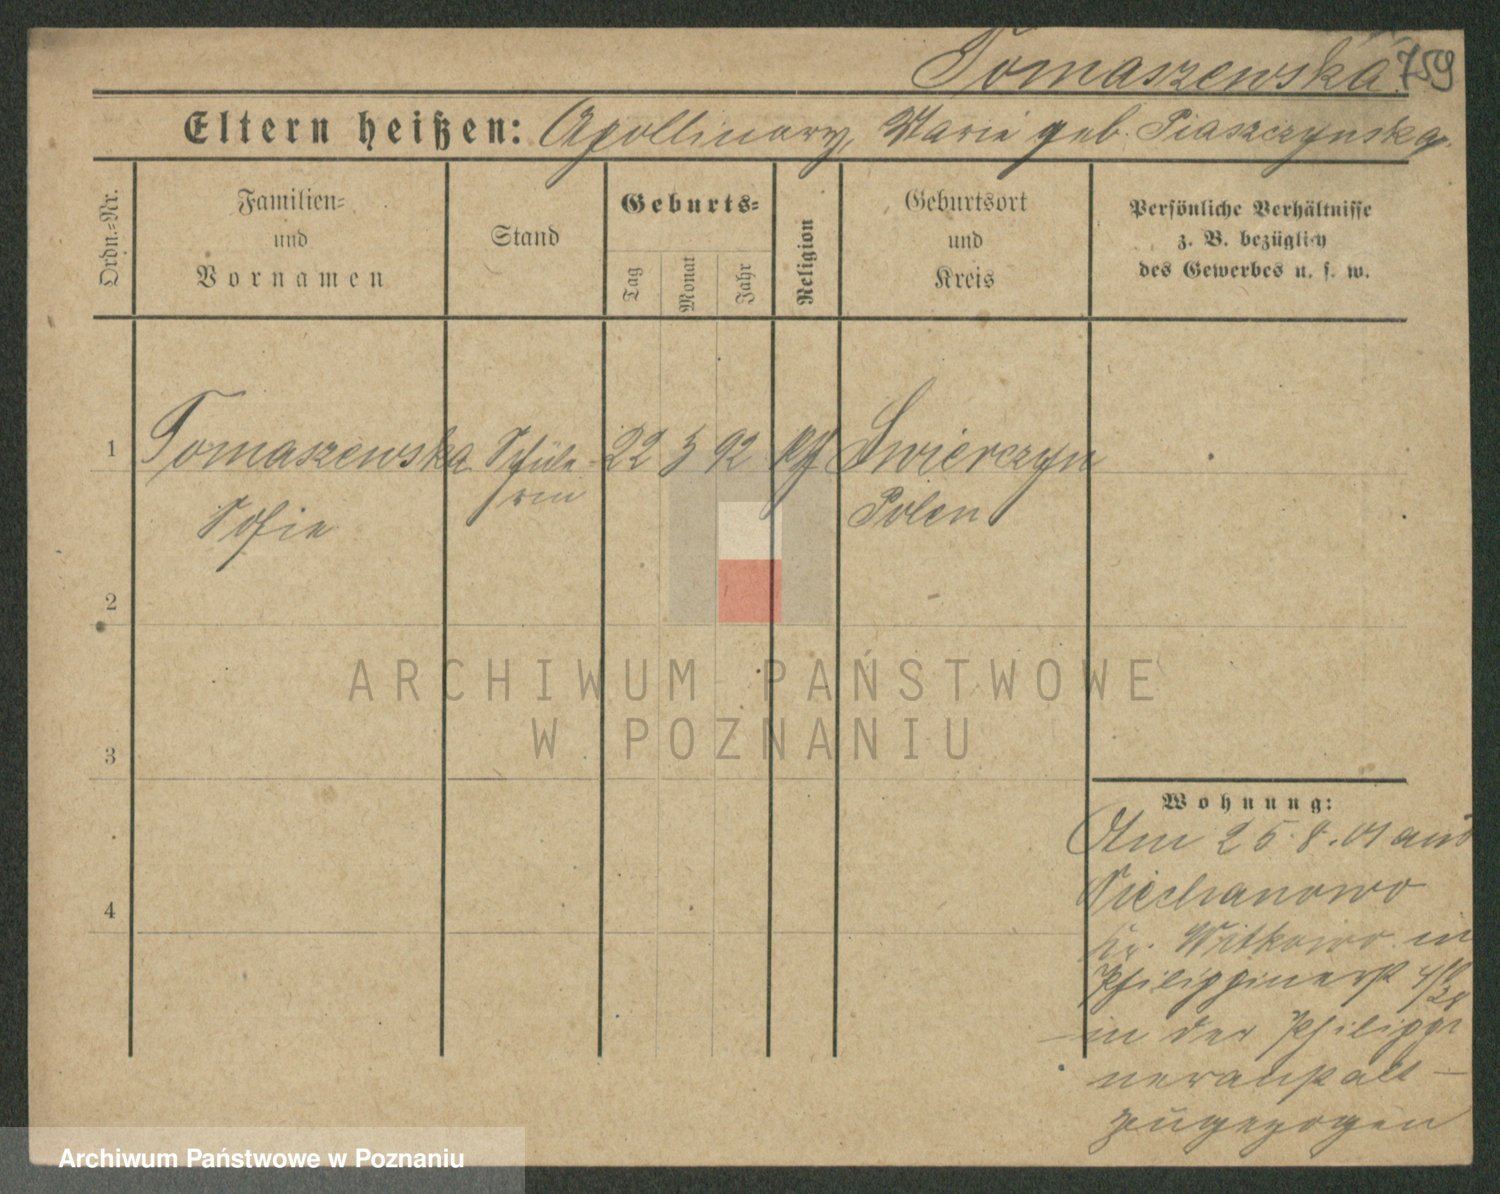 Tomaszewska 759
Eltern heißen: Apollinary, Marie geb. Piaszczynska.
Ordn.-Nr.
Familien-
und
Vornamen
Stand
Geburts-
Tag
Monat
Jahr
Religion
Geburtsort
und
Kreis
Persönliche Verhältnisse
z. B. bezüglich
des Gewerbes u. s. w.
1 Tomaszewska Schüle- 22 3 92 kth Swierczyn
Sofie rin Polen
2
3
4
Wohnung:
Am 25.8.01 aus
Niechanowo
Kr. Witkowo in
Philippinerst
in der Philippi
neranstalt
zugezogen
ARCHIWUM PAŃSTWOWE
W POZNANIU
Archiwum Państwowe w Poznaniu